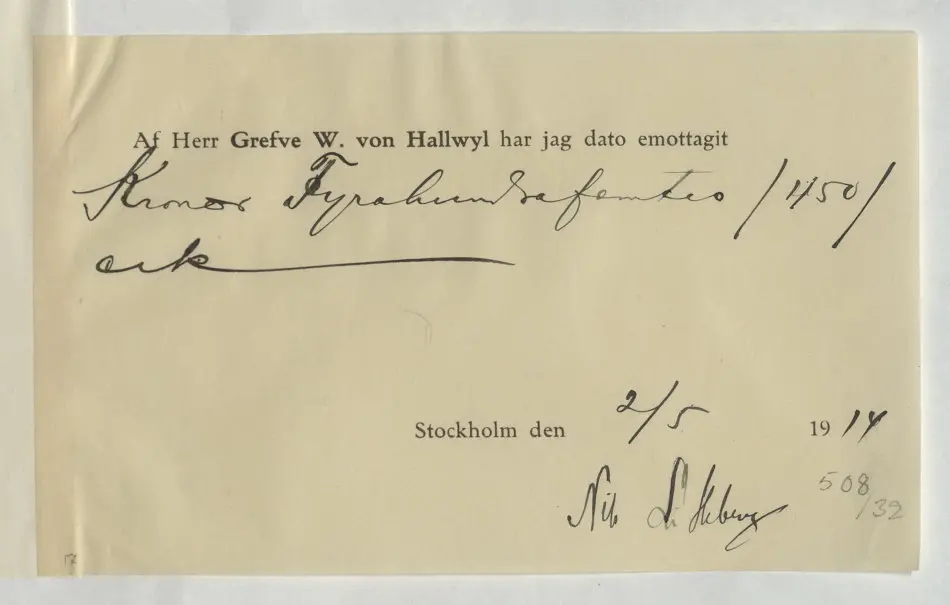 Af Herr Grefve W. von Hallwyl har jag dato emottagit
Kronor Fyrahundrafemtio /450/
Stockholm den 2/5 1914
Nils
508
/32